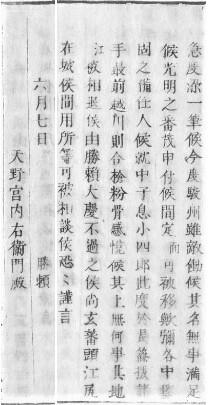 急度染一筆候今度駿州雖敵働候其名無事満足
候光明之番茂申付候間定而可被移歟彌各中堅
固之備任入候就中子息小四郎此度於長篠抜群
手最前越川則合槍粉骨感悦候其上無何事其地
江被相退候由勝頼大慶不過之候尚玄蕃頭江尻
在城候間用所等可被相談候恐々謹言
六月七日　勝頼
天野宮内右衛門殿